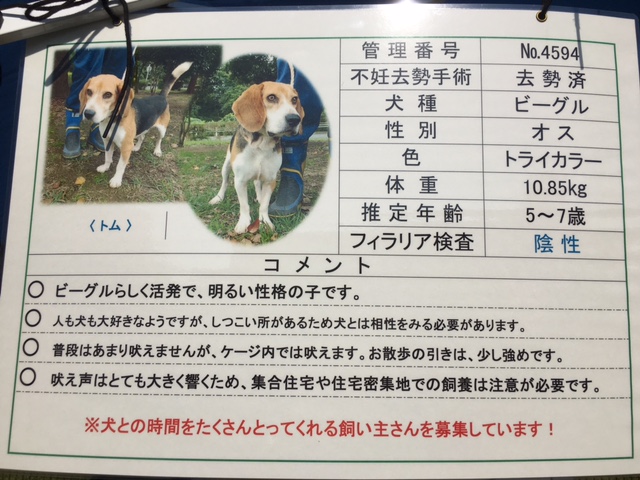 管理番号 No.4594
不妊去勢手術 去勢済
犬種 ビーグル
性別 オス
色 トライカラー
体重 10.85kg
推定年齢 5～7歳
フィラリア検査 陰性
〈トム〉
コメント
○ ビーグルらしく活発で、明るい性格の子です。
○ 人も犬も大好きなようですが、しつこい所があるため犬とは相性をみる必要があります。
○ 普段はあまり吠えませんが、ケージ内では吠えます。お散歩の引きは、少し強めです。
○ 吠え声はとても大きく響くため、集合住宅や住宅密集地での飼養は注意が必要です。
※犬との時間をたくさんとってくれる飼い主さんを募集しています！